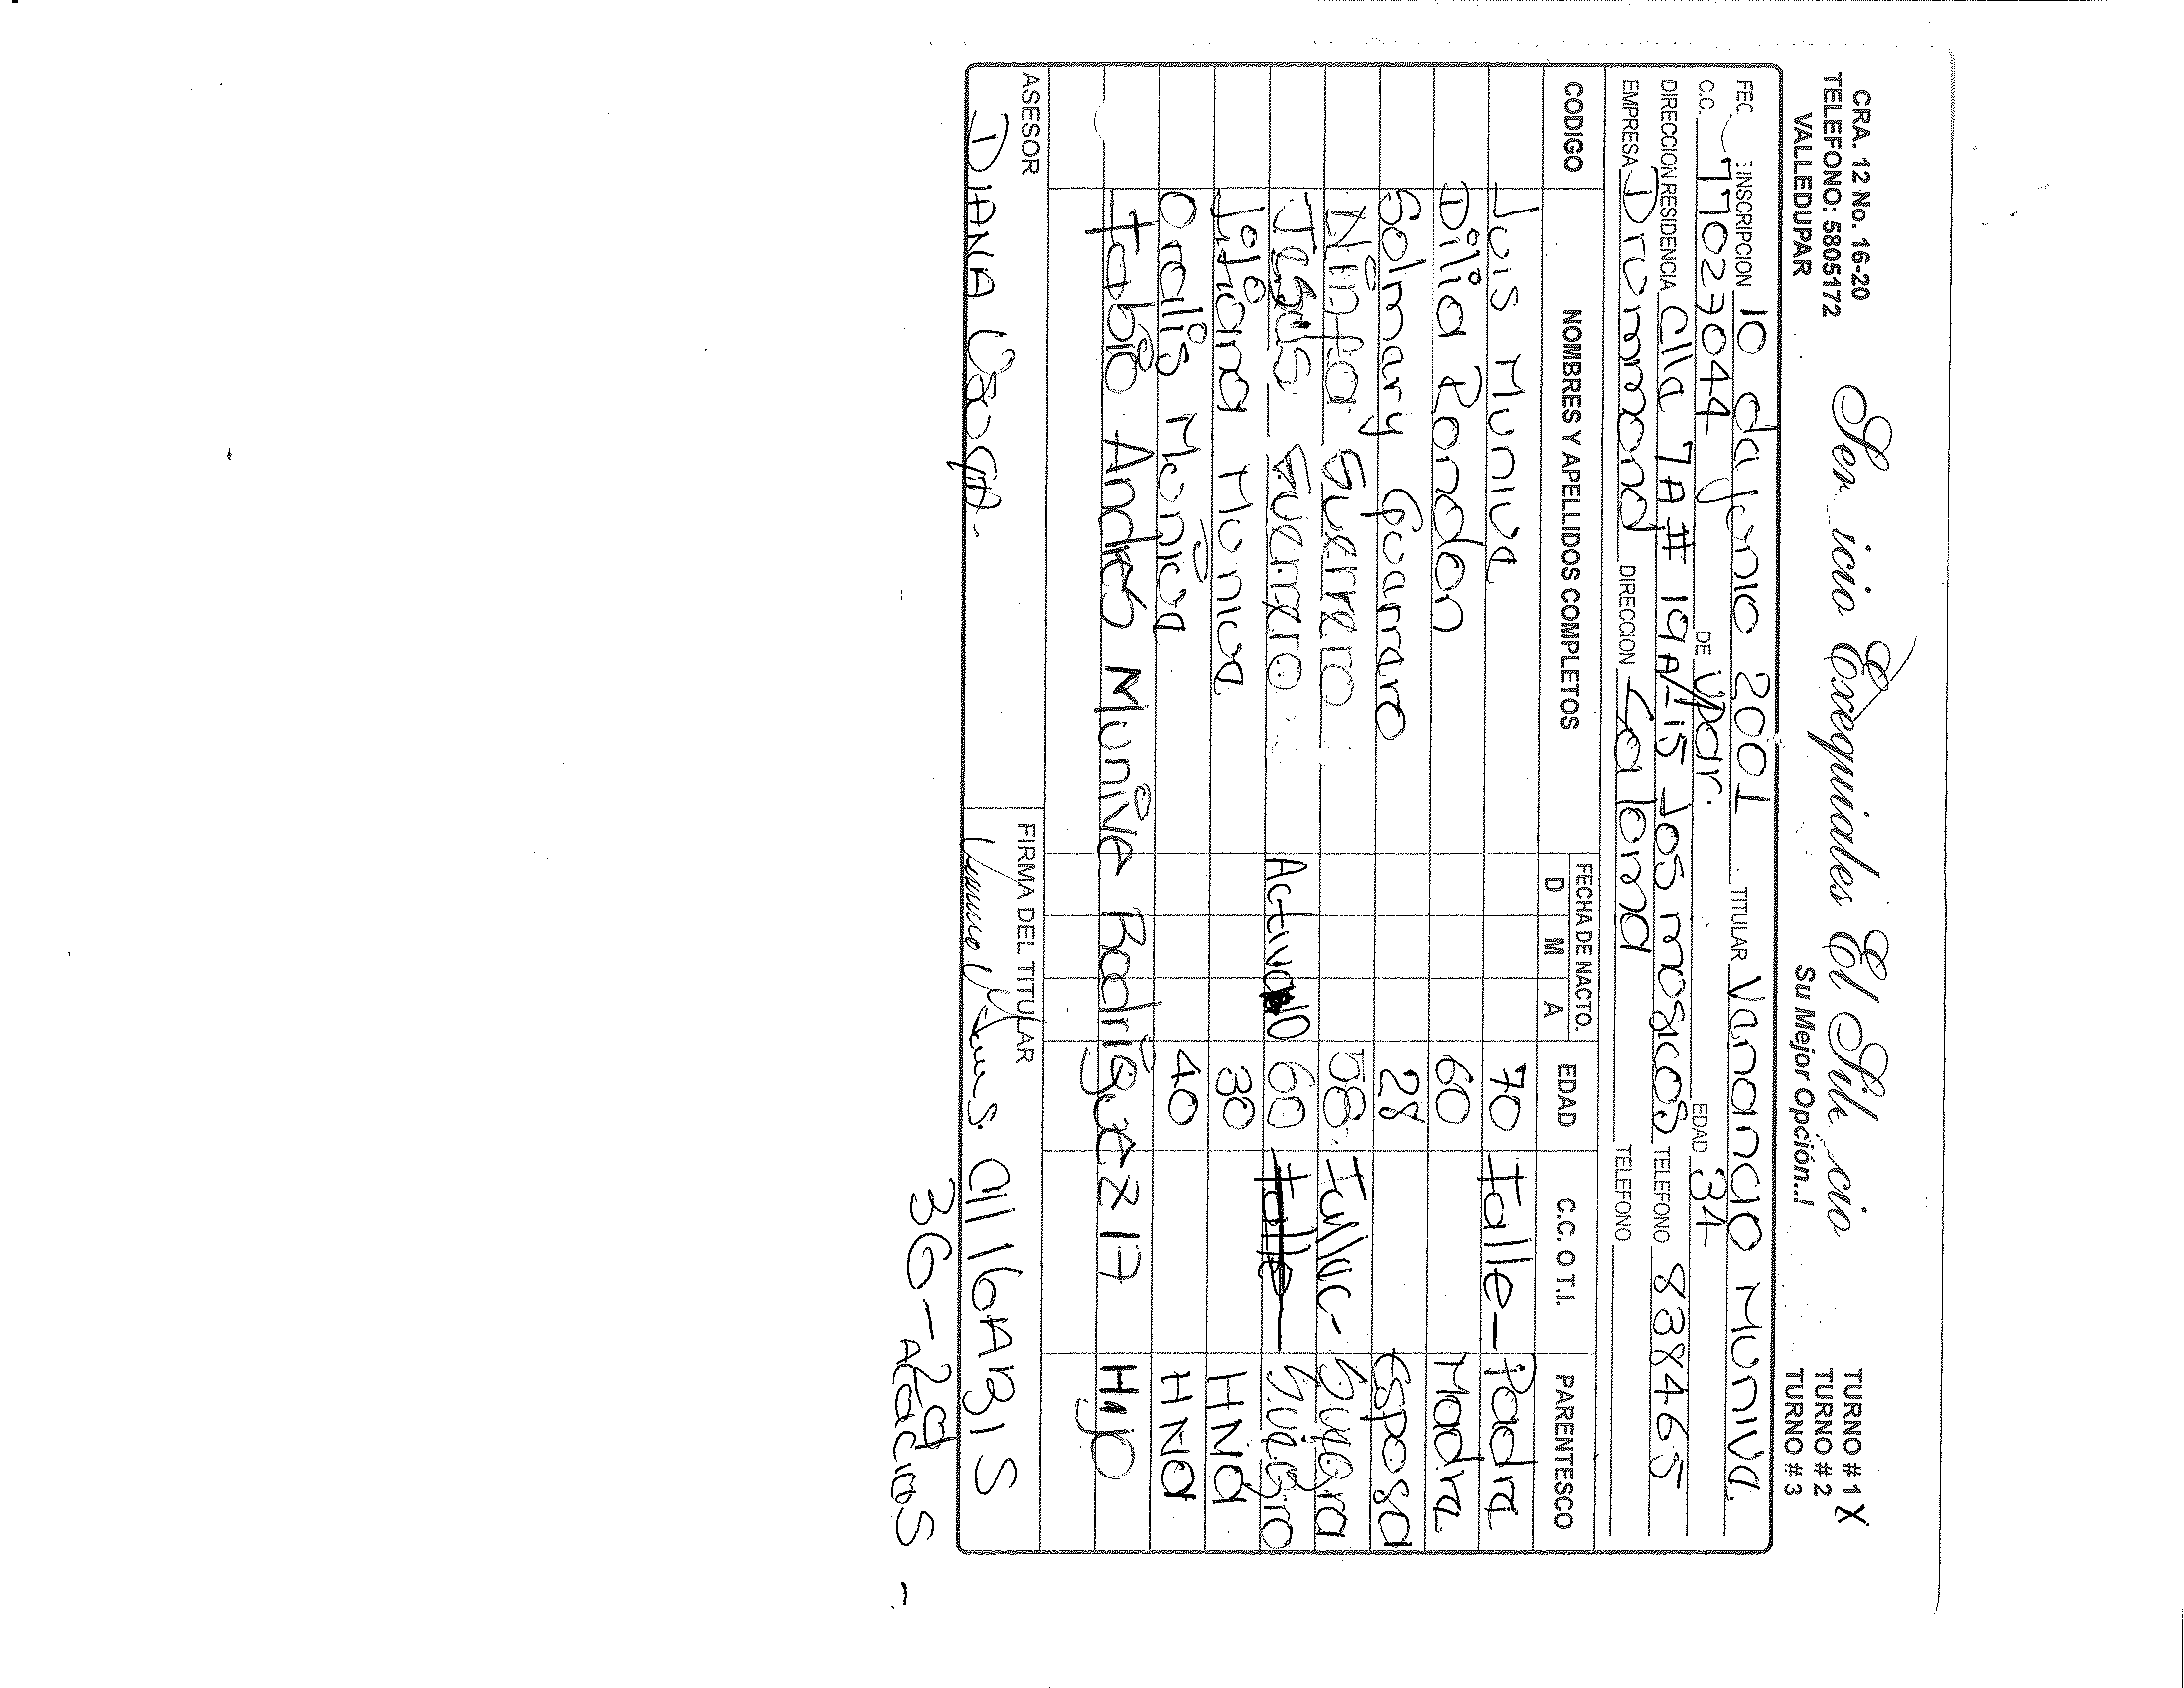 CRA. 12 No. 16-20
TELEFONO: 5805172
VALLEDUPAR
Ser icio Exequiales El Sile cio
Su Mejor Opción..!
TURNO # 1 X
TURNO # 2
TURNO # 3
FEC. INSCRIPCION 10 da Junio 2001 TITULAR Vanancio Muniva.
C.C. 77023044 DE Vpar. EDAD 34
DIRECCION RESIDENCIA Clla 7A # 19A-15 Los mosicos TELEFONO 838465
EMPRESA Drummond DIRECCION La loma TELEFONO
CODIGO NOMBRES Y APELLIDOS COMPLETOS FECHA DE NACTO. D M A EDAD C.C. O T.I. PARENTESCO
Luis Muniva 70 Falle- Padra
Dilia Rondon 60 Madra
Solmary Guarraro 28 Esposa
Ninfa Guerrero 58 Suegra
Jesus Guerrero Activado 60 Falle Suegro
Liliana Muniva 30 HNa
Oralis Muniva 40 HNa
Fabio Andres Muniva Rodriguez 17 Hijo
ASESOR FIRMA DEL TITULAR
DIANA
Cll 16A BIS
36-29
Acacias -